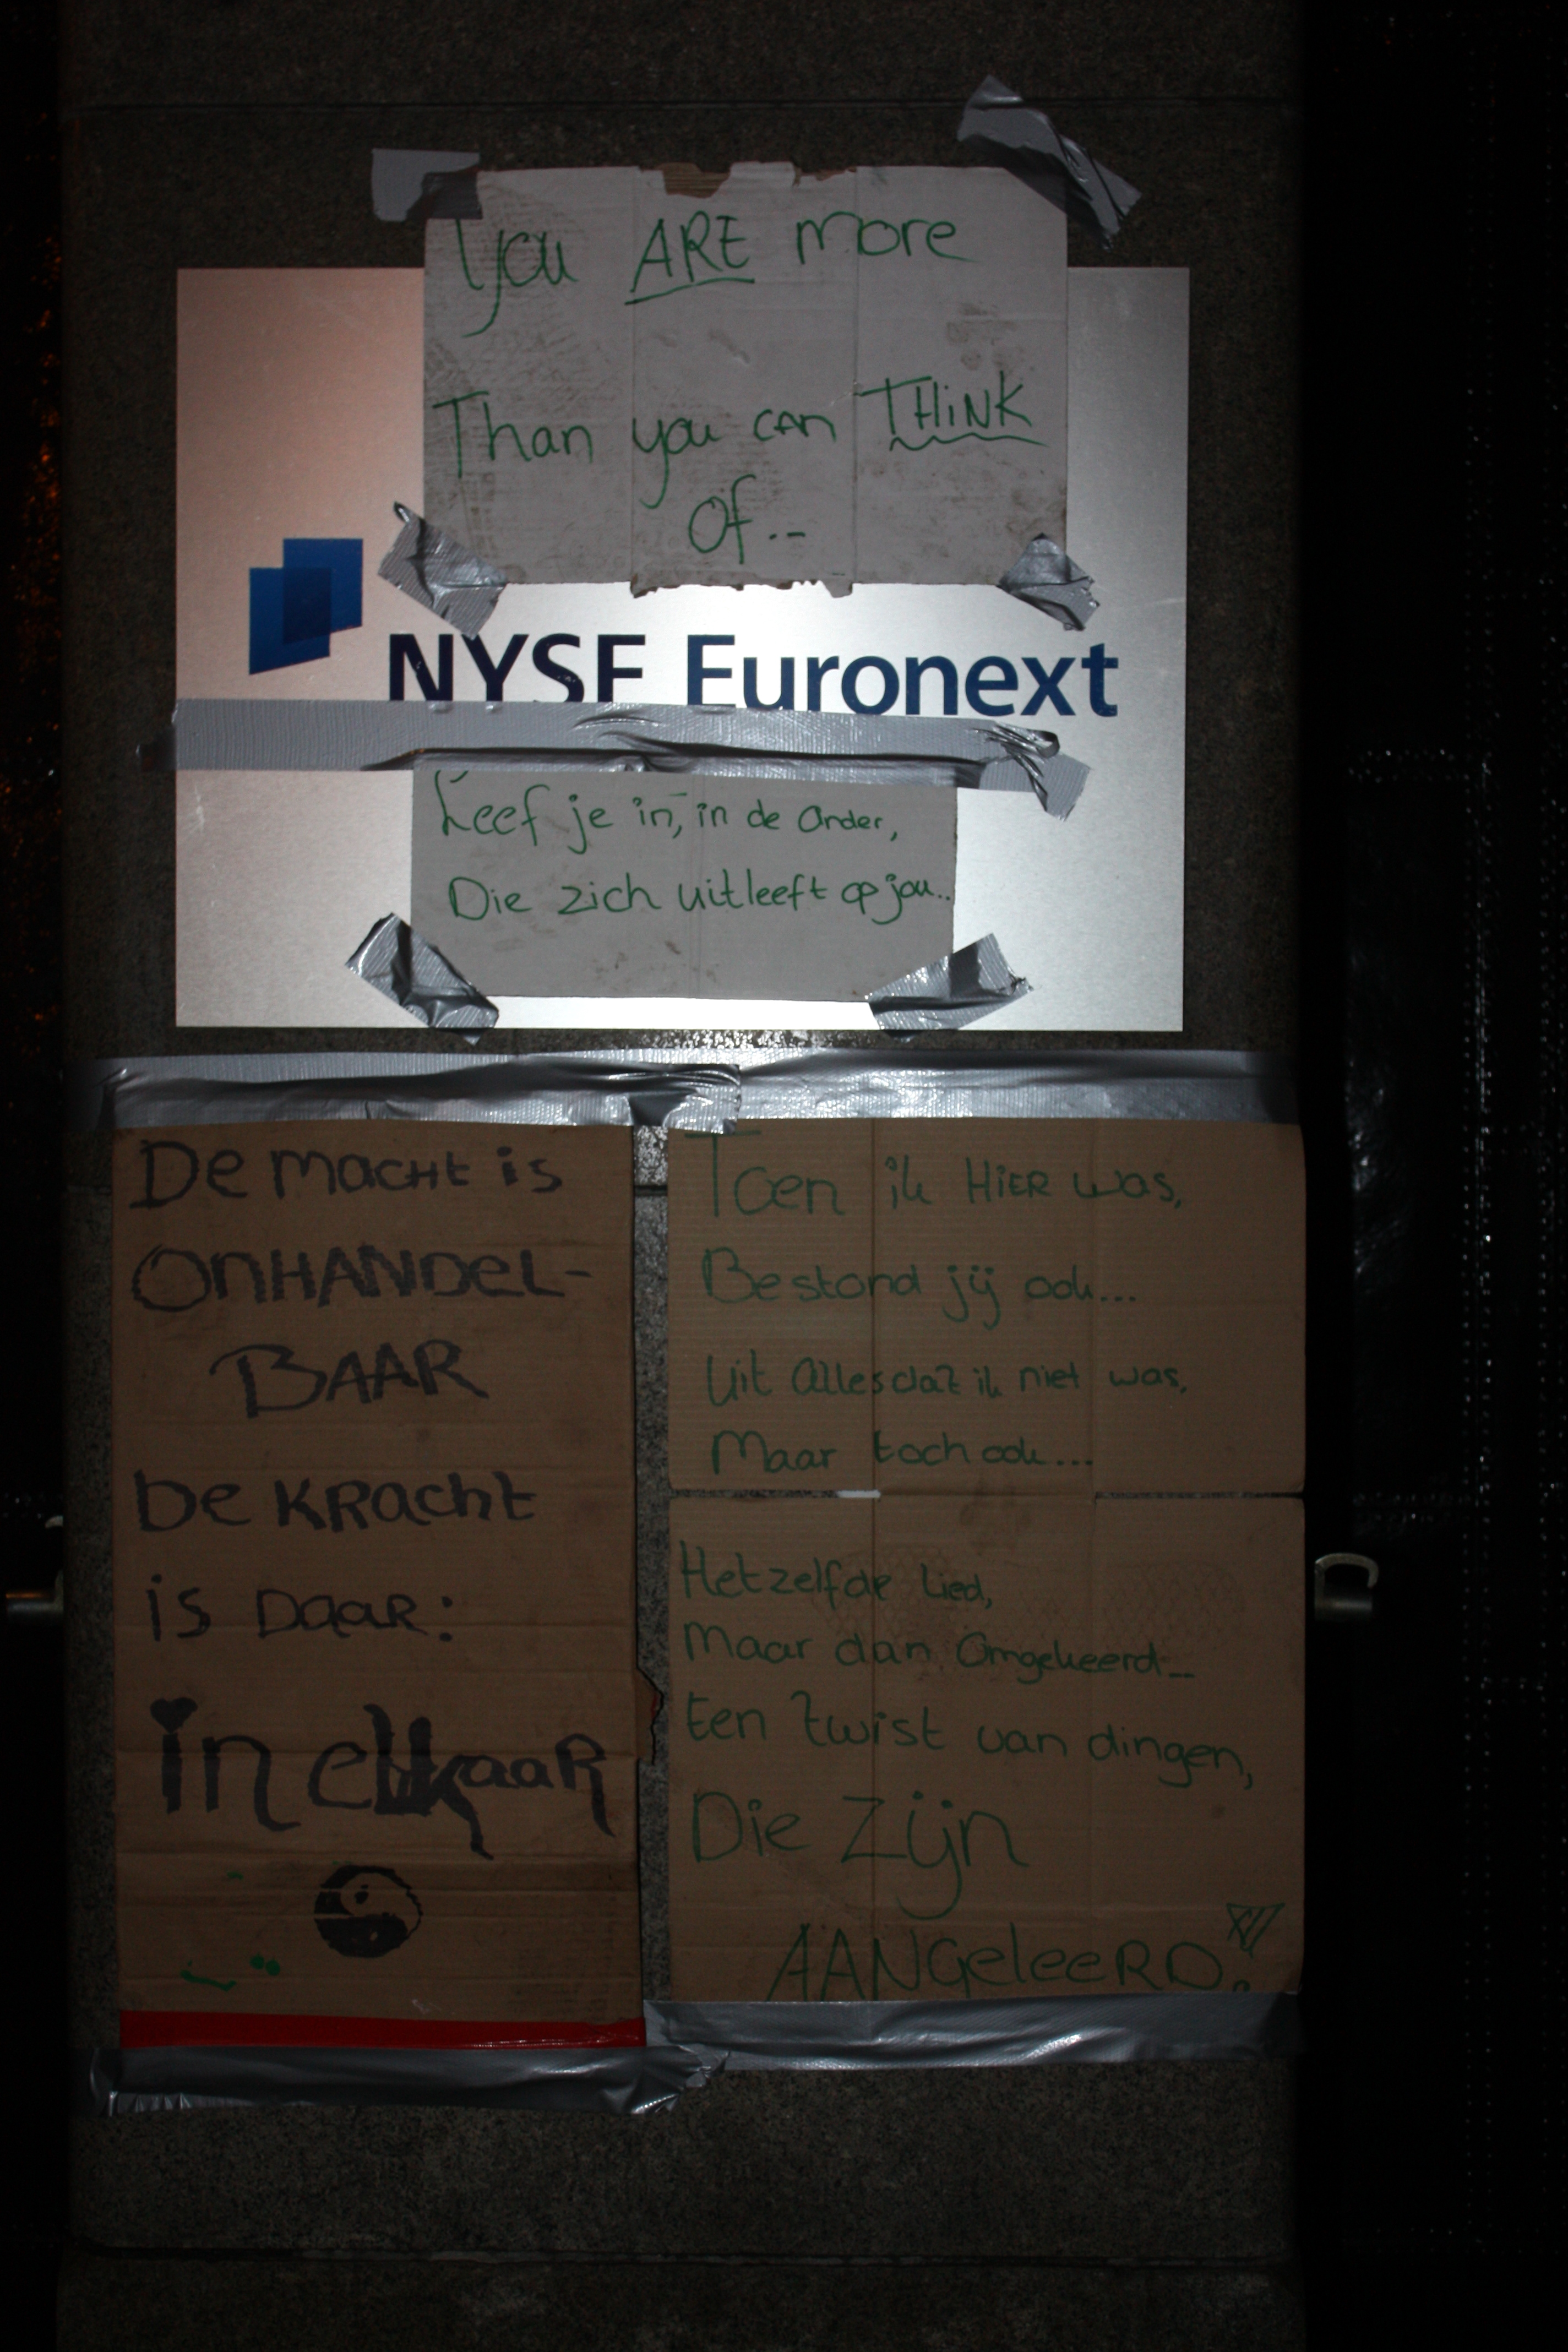 You ARE more
Than you can THiNK
Of..
NYSE Euronext
Leef je in, in de Ander,
Die zich uitleeft op jou..
De macht is
ONHANDEL-
BAAR
De KRacht
is Daar:
in elkaar
Toen ik HiER was,
Bestond jij ook...
Uit Allesdat ik niet was,
Maar toch ook....
Hetzelfde Lied,
Maar dan Omgekeerd..
Een Twist van dingen,
Die Zijn
AANGeleeRD.